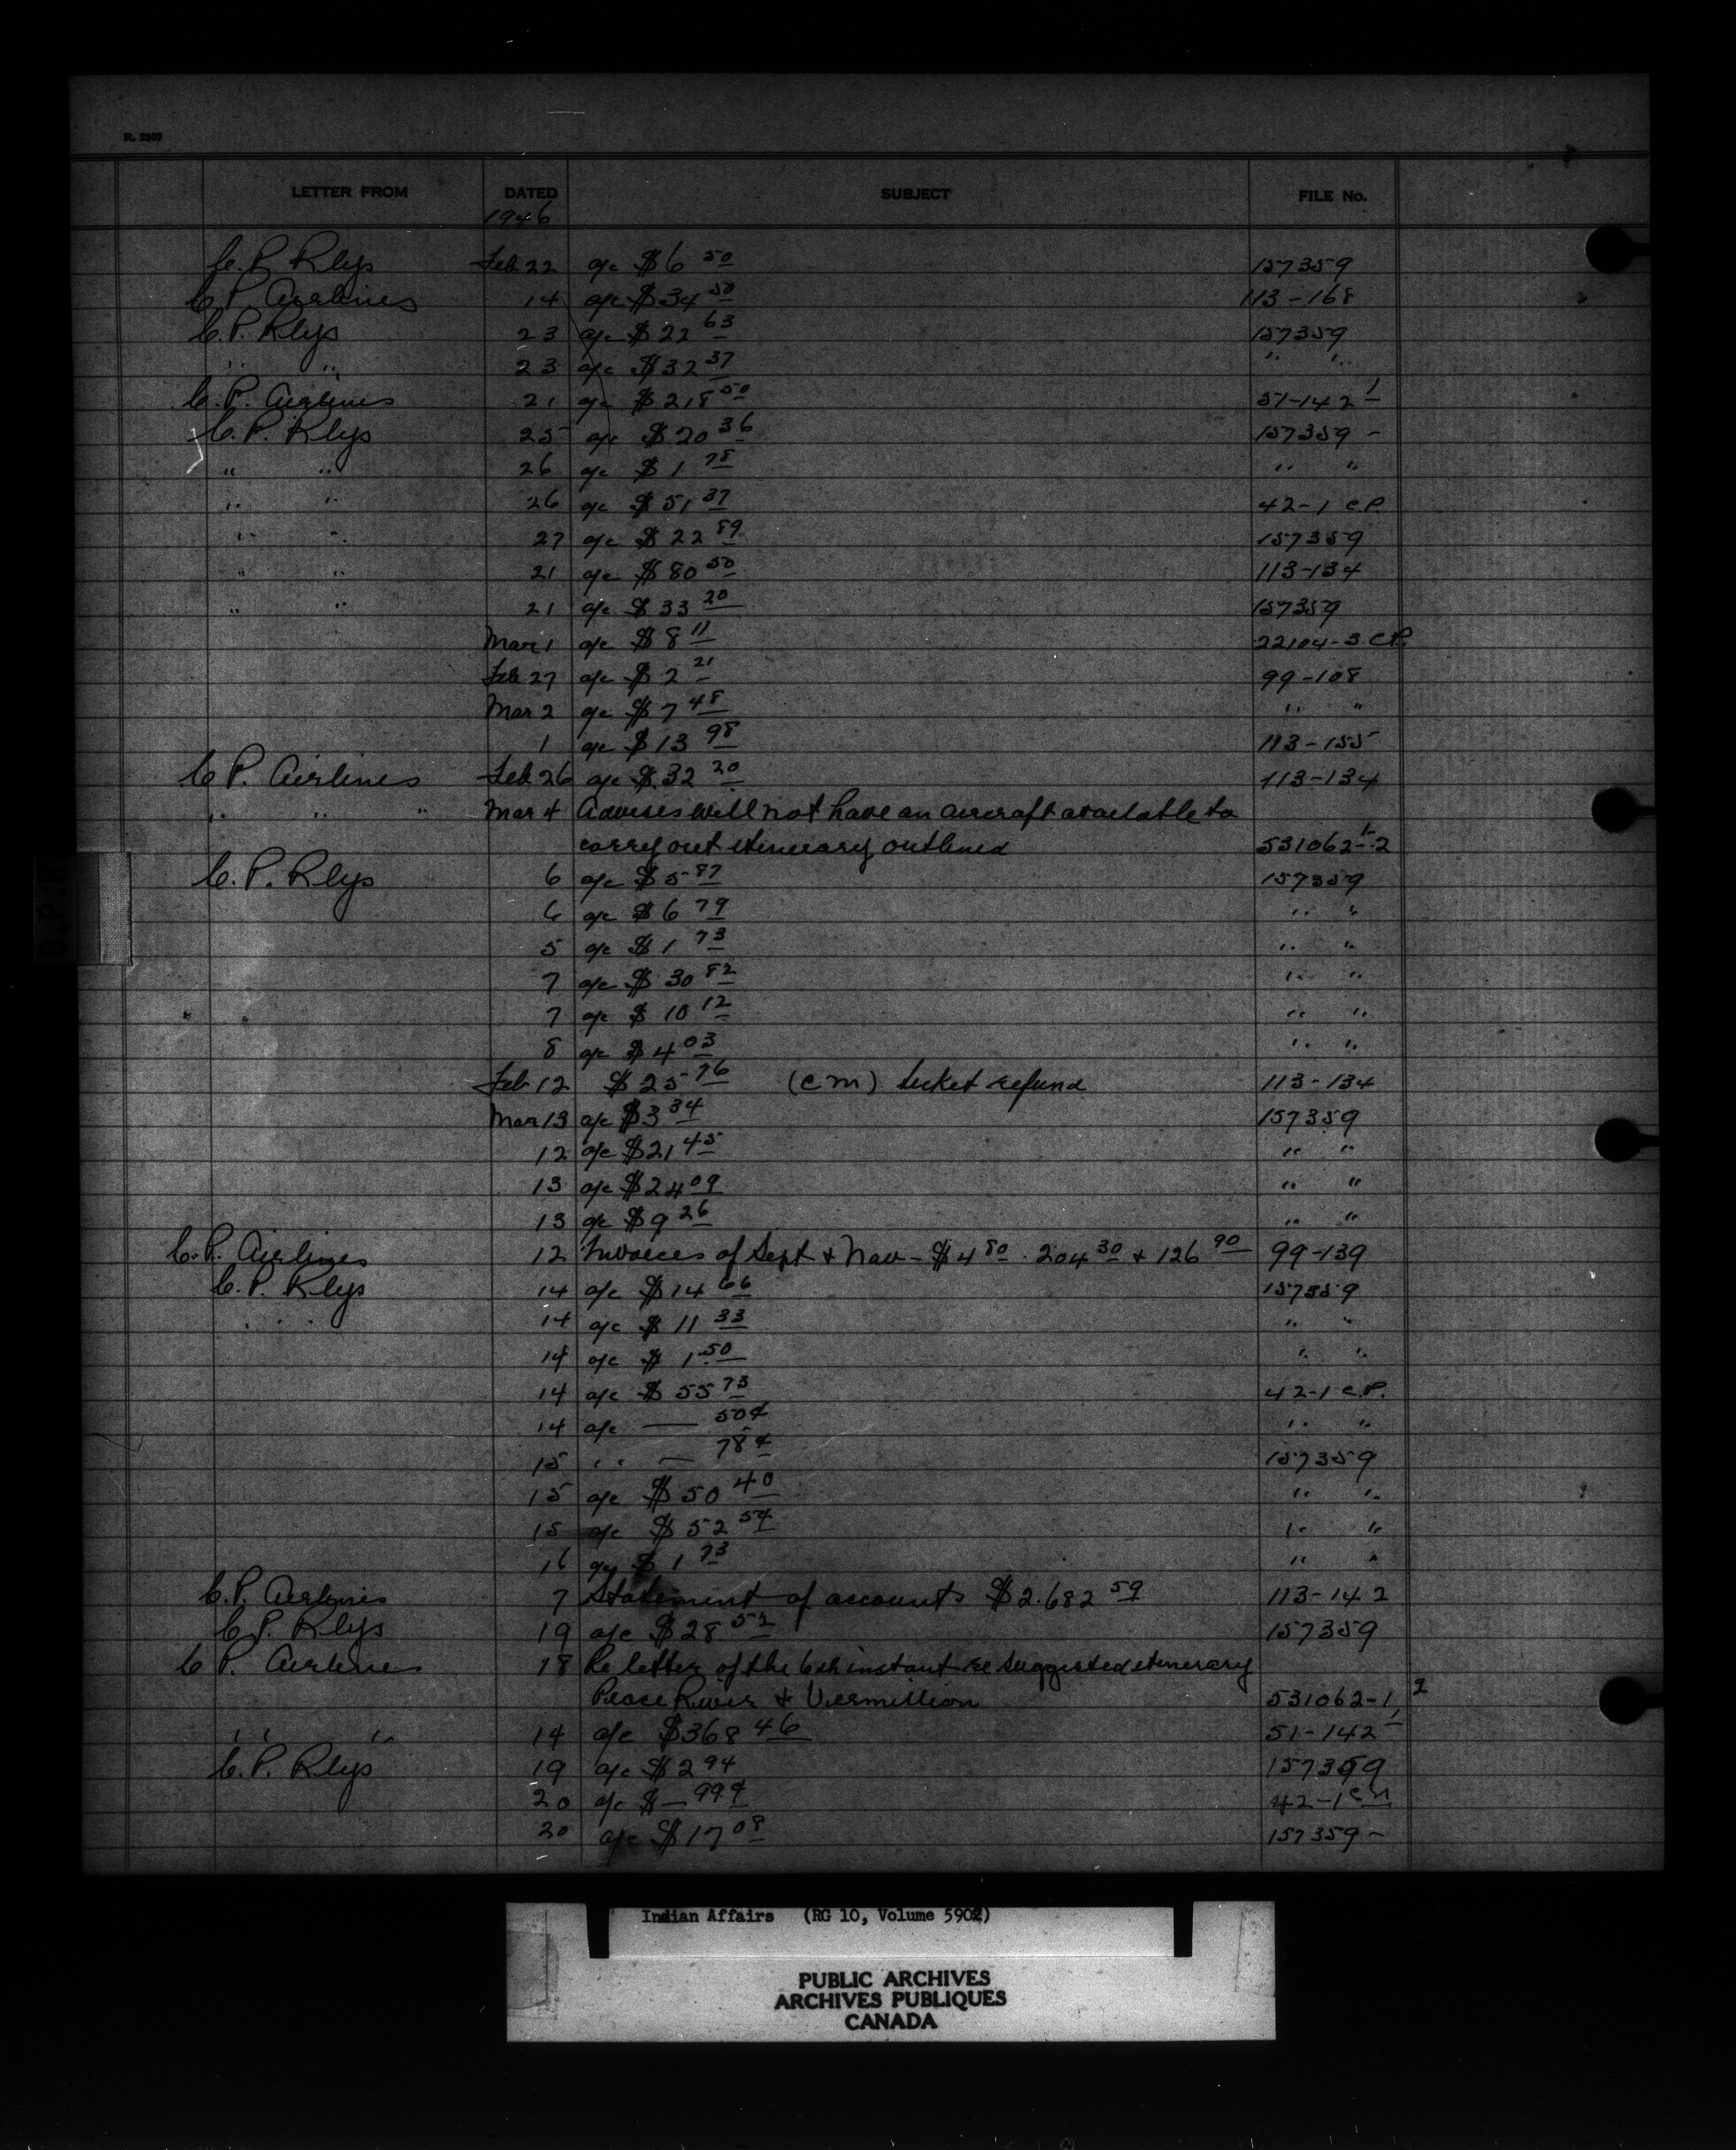 R. 3307
LETTER FROM DATED SUBJECT FILE No.
1946
C. P. Rlys Feb 22 a/c $6 50 157359
C P. Airlines 14 a/c $34 50 113-168
C. P. Rlys 23 a/c $22 63 157359
" " 23 a/c $32 37 " "
C. P. Airlines 21 a/c $218 50 51-142 1
C. P. Rlys 25 a/c $20 36 157359 -
" " 26 a/c $1 78 " "
" " 26 a/c $51 37 42-1 C.P.
" " 27 a/c $22 89 157359
" " 21 a/c $80 50 113-134
" " 21 a/c $33 20 157359
Mar 1 a/c $8 11 22104-3 C.P.
Feb 27 a/c $2 21 99-108
Mar 2 a/c $7 48 " "
1 a/c $13 98 113-155
C P. Airlines Feb 26 a/c $32 20 113-134
" " " Mar 4 Advises will not have an aircraft available to
carry out itinerary outlined 531062-1-2
C. P. Rlys 6 a/c $5 87 157359
6 a/c $6 79 " "
5 a/c $1 73 " "
7 a/c $30 82 " "
" " 7 a/c $10 12 " "
8 a/c $4 03 " "
Feb 12 $25 76 (C M) ticket refund 113-134
Mar 13 a/c $3 34 157359
12 a/c $21 45 " "
13 a/c $24 09 " "
13 a/c $9 26 " "
C. P. Airlines 12 Invoices of Sept & Nov - $4 80 . 204 30 + 126 90 99-139
C. P. Rlys 14 a/c $14 66 157359
" " 14 a/c $11 33 " "
14 a/c $1 50 " "
14 a/c $55 73 42-1 C.P.
14 a/c — 50¢ " "
15 " — 78¢ 157359
15 a/c $50 40 " "
15 a/c $52 54 " "
16 a/c $1 73 " "
C. P. Airlines 7 Statement of accounts $2.682 59 113-142
C P. Rlys 19 a/c $28 52 157359
C P. Airlines 18 Re letter of the 6th instant re suggested itinerary
Peace River & Vermillion 531062-1 2
" " 14 a/c $368 46 51-142 1
C. P. Rlys 19 a/c $2 94 157359
20 a/c $— 99¢ 42-1
20 a/c $17 08 157359 -
C.P.R
Indian Affairs (RG 10, Volume 5902)
PUBLIC ARCHIVES
ARCHIVES PUBLIQUES
CANADA